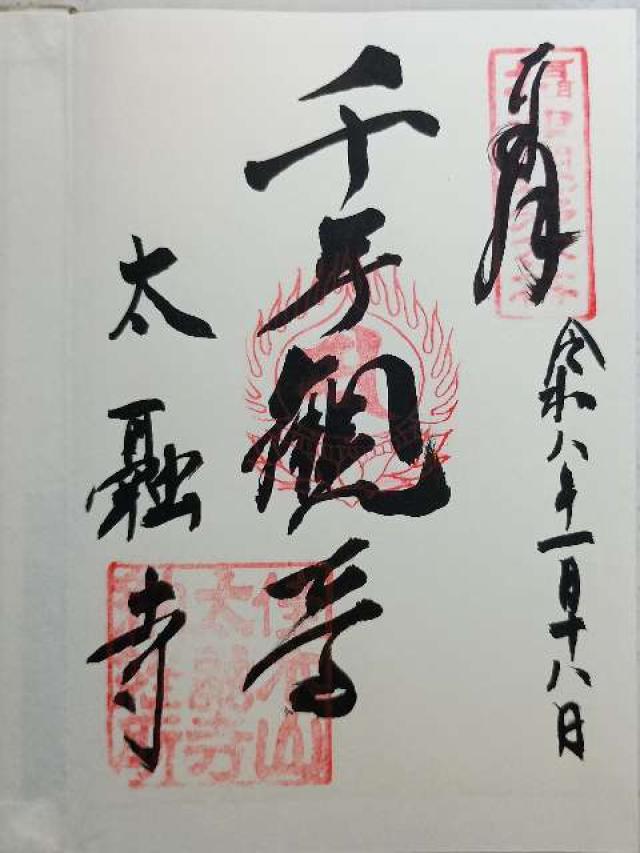 奉拝
令和八年一月十八日
千手観音
太融寺
佳木山
太融寺